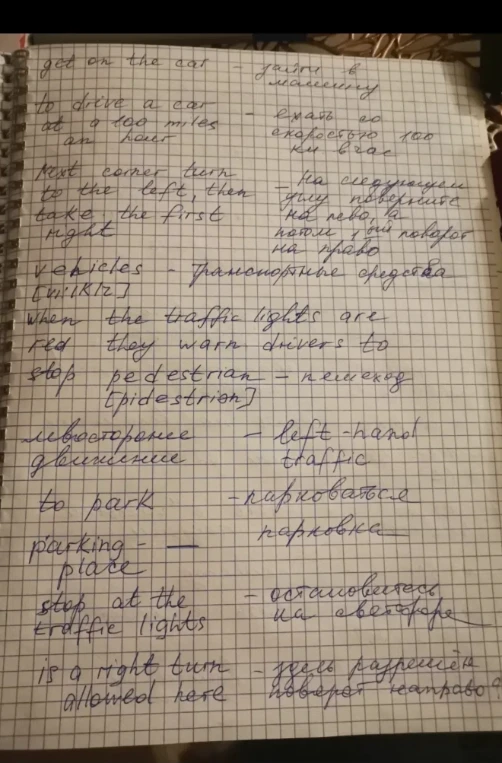 get on the car - зайти в
машину
to drive a car - ехать со
at a 100 miles скоростью 100
an hour км в час
Next corner turn - На следующем
to the left, then углу поверните
take the first на лево, а
right потом 1ый поворот
на право
vehicles - транспортные средства
[vi:iklz]
when the traffic lights are
red they warn drivers to
stop pedestrian - пешеход
[pidestrion]
левостороне - left-hand
движение traffic
to park - парковаться
парковка
parking - —
place
stop at the - остановитесь
traffic lights на светофоре
is a right turn - здесь разрешён
allowed here поворот направо?